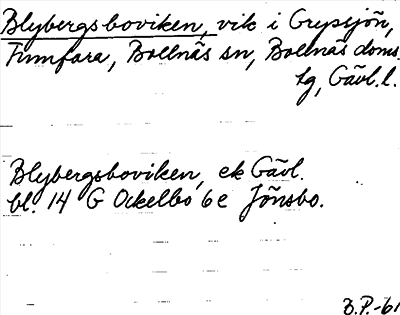 Blybergsboviken, vik i Grypsjön,
Finnfara, Bollnäs sn, Bollnäs doms.
lg, Gävl. l.
Blybergsboviken, ek Gävl.
bl. 14 G Ockelbo 6e Jönsbo.
B.P.-61